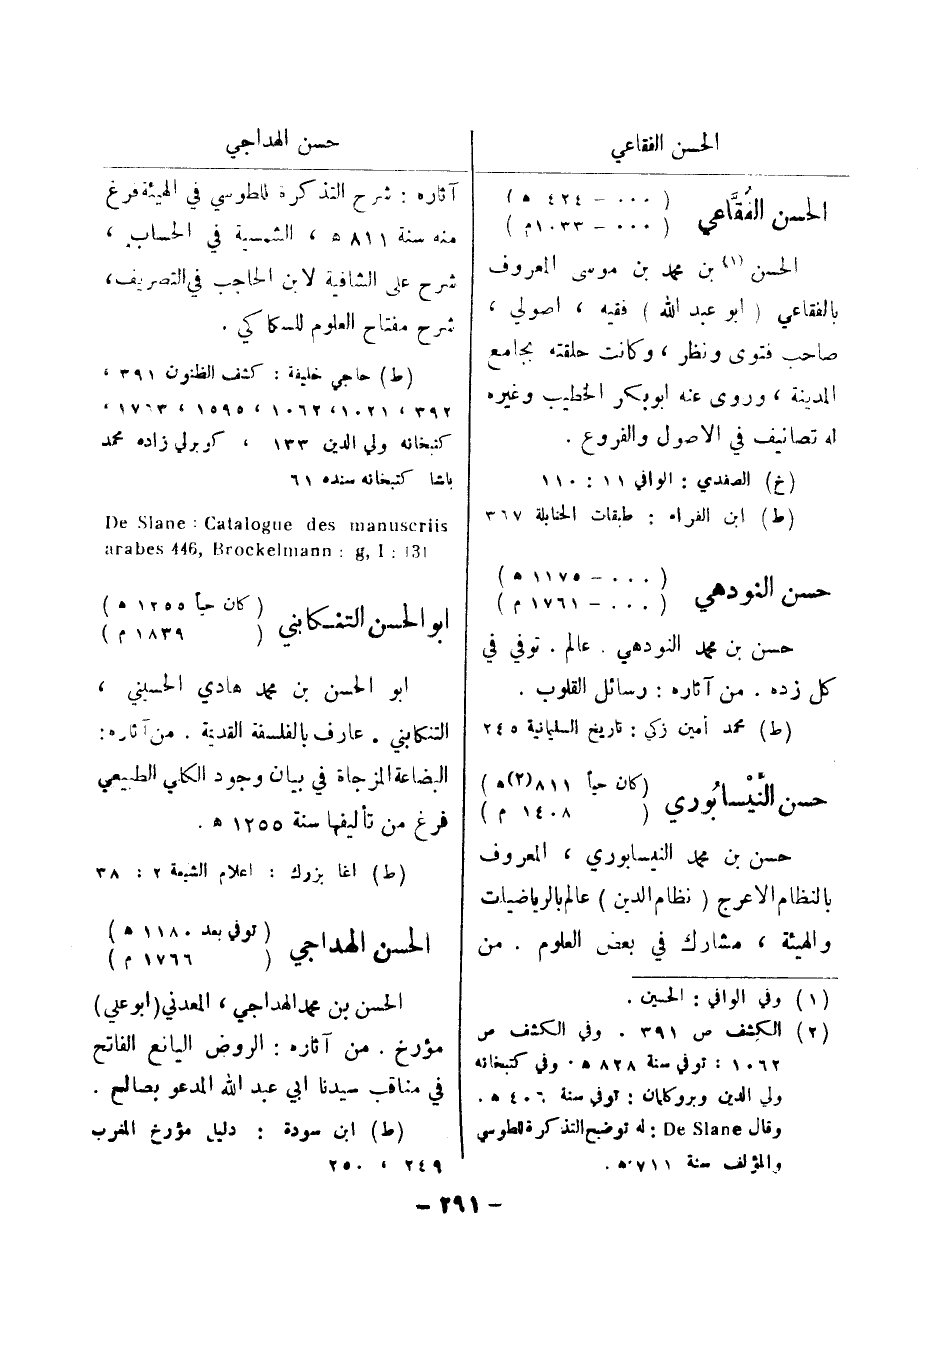 الحسن الفقاعي
الحسن الفُقَّاعي ( ٠٠٠ - ٤٢٤ ه )
( ٠٠٠ - ١٠٣٣م )
الحسن (١) بن محمد بن موسى المعروف
بالفقاعي ( ابو عبد الله ) فقيه ، اصولي ،
صاحب فتوى ونظر ، وكانت حلقته بجامع
المدينة ، وروى عنه ابوبكر الخطيب وغيره
له تصانيف في الاصول والفروع .
(خ) الصفدي : الوافي ١١ : ١١٠
(ط) ابن الفراء : طبقات الحنابلة ٣٦٧
حسن النودهي ( ٠٠٠ - ١١٧٥ ه )
( ٠٠٠ - ١٧٦١ م )
حسن بن محمد النودهي . عالم . توفي في
كل زده . من آثاره : رسائل القلوب .
(ط) محمد أمين زكي : تاريخ السليمانية ٢٤٥
حسن النَّيْسابُوري (كان حياً ٨١١(٢)ه )
( ١٤٠٨ م )
حسن بن محمد النيسابوري ، المعروف
بالنظام الاعرج ( نظام الدين ) عالم بالرياضيات
والهيئة ، مشارك في بعض العلوم . من
(١) وفي الوافي : الحسين .
(٢) الكشف ص ٣٩١ . وفي الكشف ص
١٠٦٢ : توفي سنة ٨٢٨ ه . وفي كتبخانه
ولي الدين وبروكلمان : توفي سنة ٤٠٦ ه .
وقال De Slane : له توضيح التذكرة للطوسي
والمؤلف سنة ٧١١ه .
حسن الهداجي
آثاره : شرح التذكرة للطوسي في الهيئة فرغ
منه سنة ٨١١ ه ، الشمسية في الحساب ،
شرح على الشافية لابن الحاجب في التصريف،
شرح مفتاح العلوم للسكاكي .
(ط) حاجي خليفة : كشف الظنون ٣٩١ ،
٣٩٢ ، ١٠٢١، ١٠٦٢ ، ١٥٩٥ ، ١٧٦٣،
كتبخانه ولي الدين ١٣٣ ، كوبرلي زاده محمد
باشا كتبخانه سنده ٦١
De Slane : Catalogue des manuscriis
arabes 446, Brockelmann : g, I : 131
ابو الحسن التنكابني ( كان حياً ١٢٥٥ ه )
( ١٨٣٩ م )
ابو الحسن بن محمد هادي الحسيني ،
التنكابني . عارف بالفلسفة القديمة . من آثاره:
البضاعة المزجاة في بيان وجود الكلي الطبيعي
فرغ من تأليفها سنة ١٢٥٥ ه .
(ط) اغا بزرك : اعلام الشيعة ٢ : ٣٨
الحسن الهداجي ( توفي بعد ١١٨٠ ه )
( ١٧٦٦ م )
الحسن بن محمد الهداجي ، المعدني (ابو علي)
مؤرخ . من آثاره : الروض اليانع الفائح
في مناقب سيدنا ابي عبد الله المدعو بصالح .
(ط) ابن سودة : دليل مؤرخ المغرب
٢٤٩ ، ٢٥٠
- ٢٩١ -